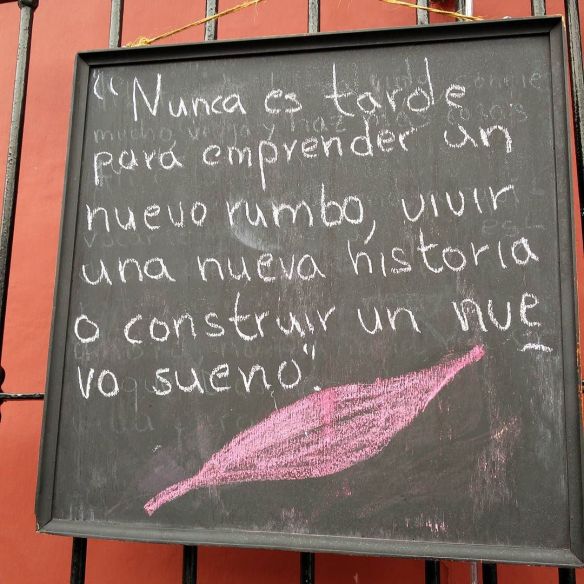 "Nunca es tarde
para emprender un
nuevo rumbo, vivir
una nueva historia
o construir un nue
vo sueno".